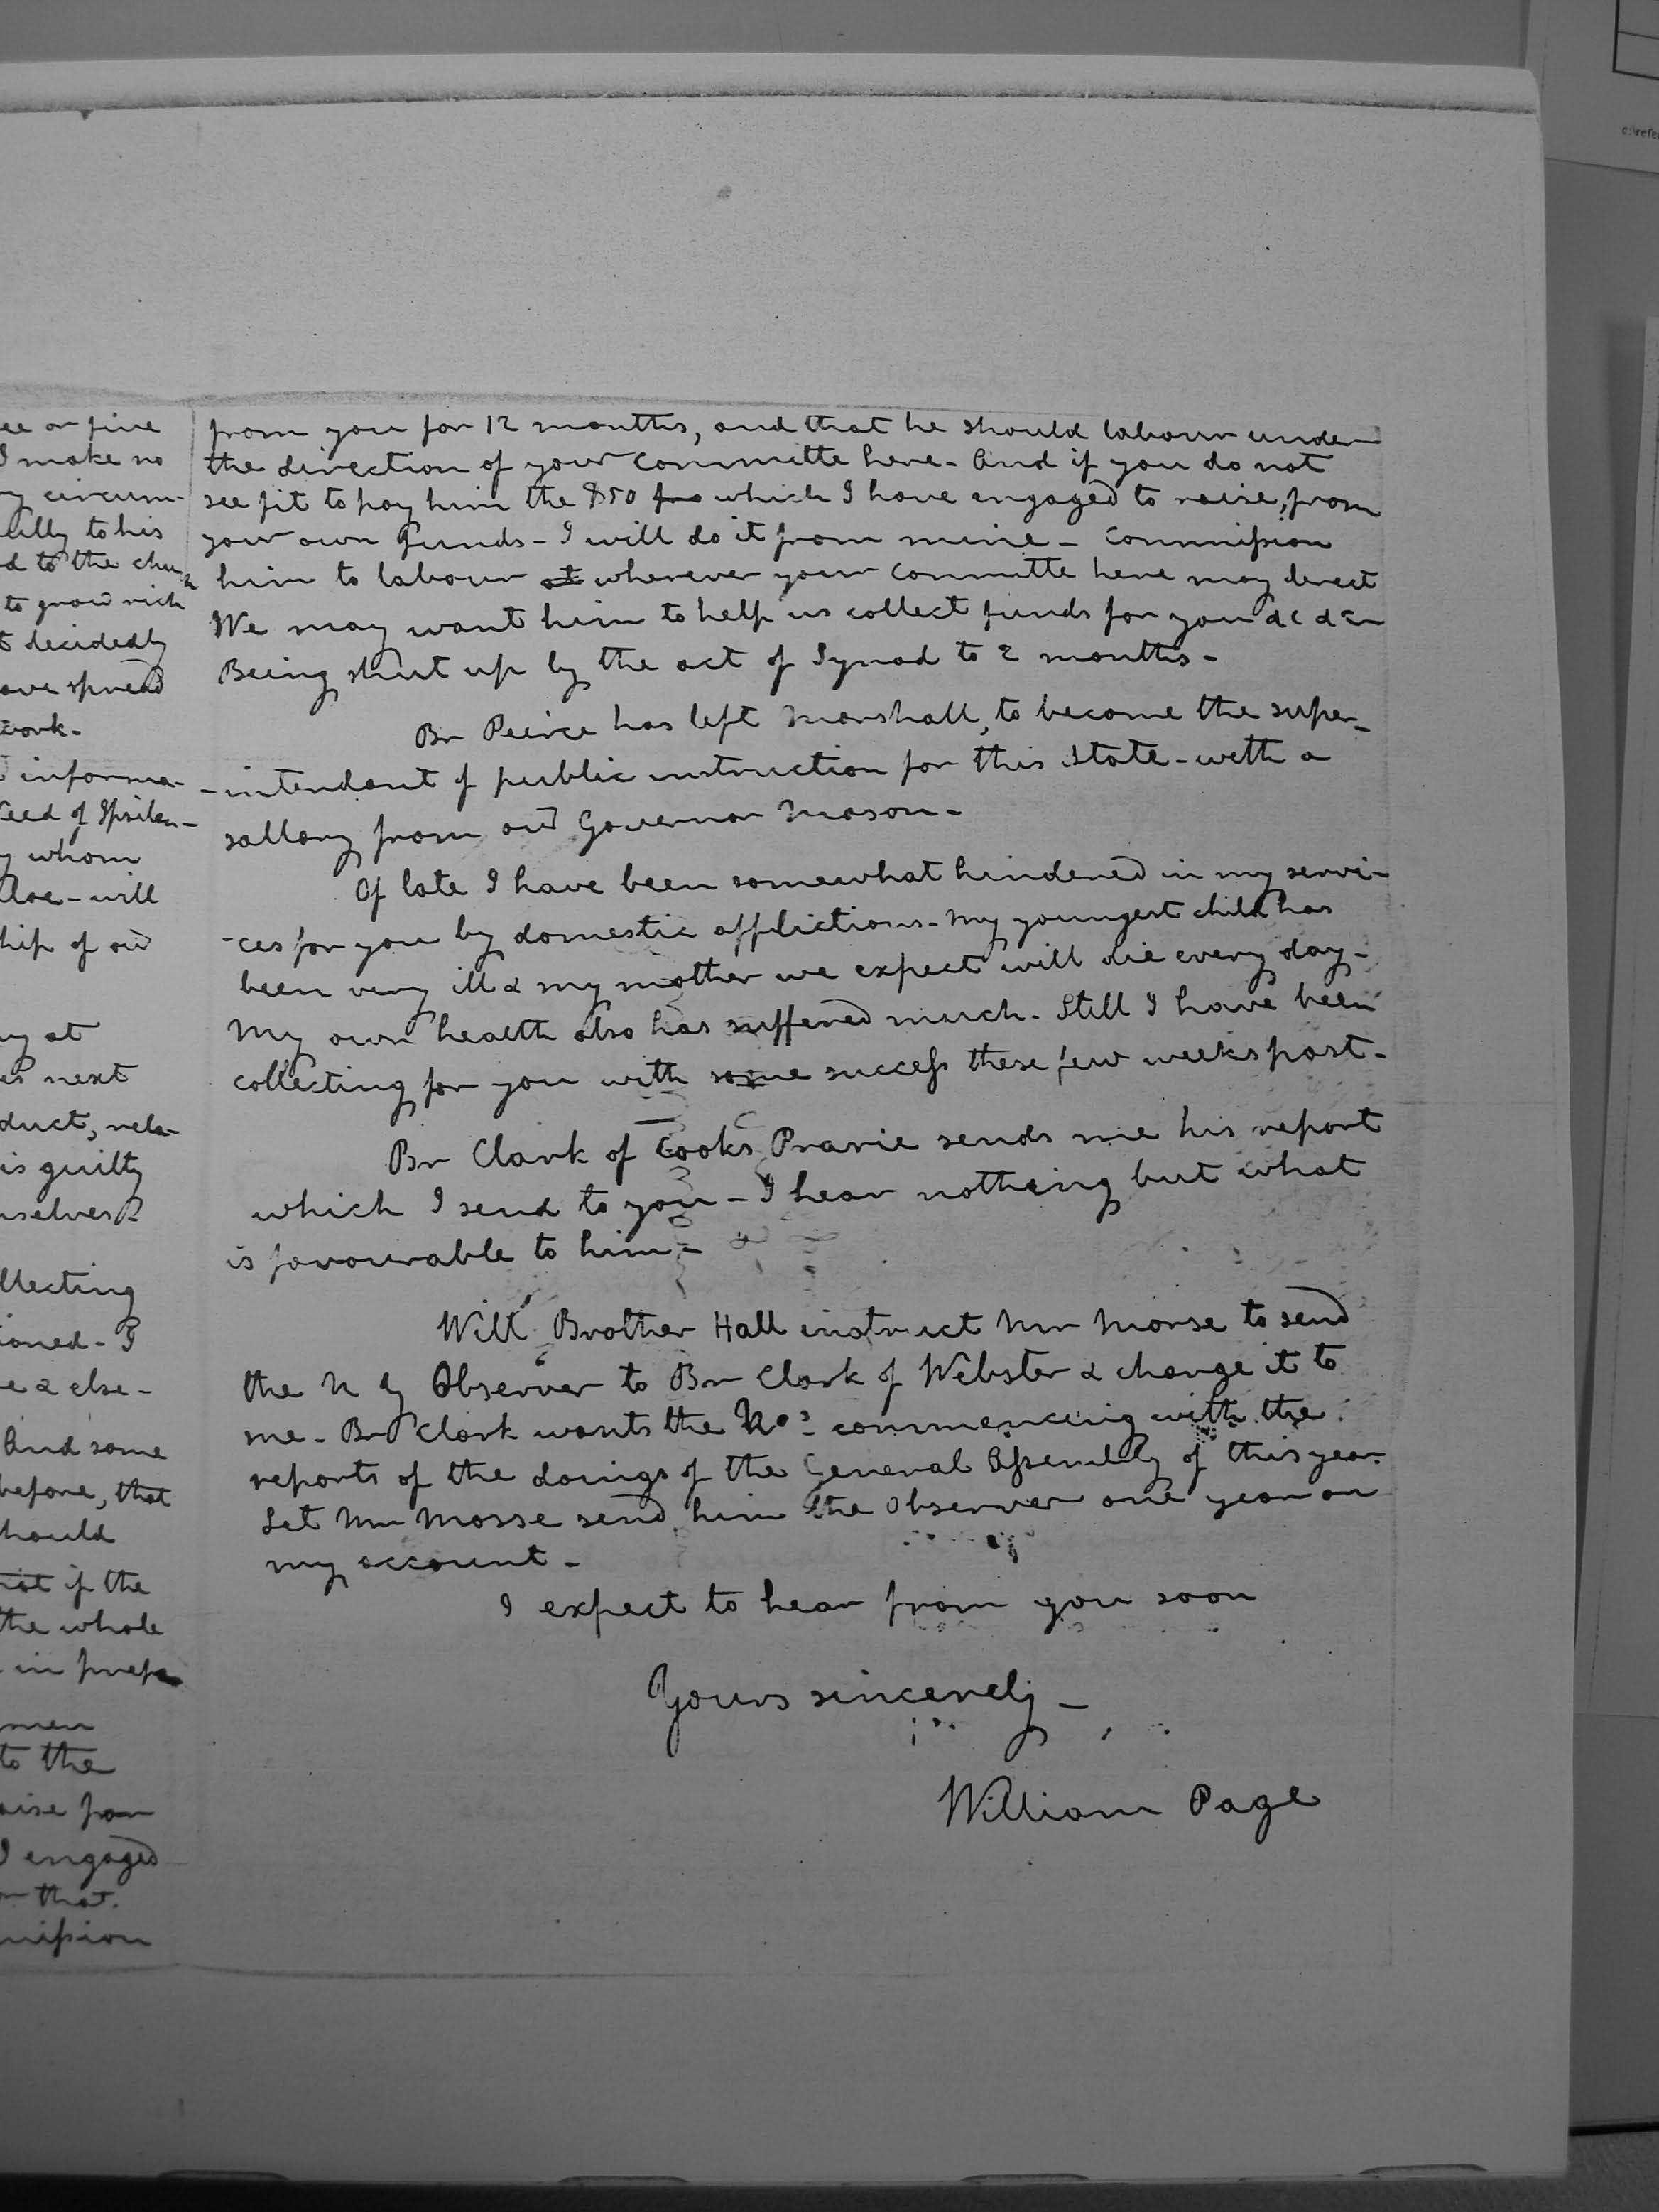 ee or five
I make no
y circum-
ully to his
d to the chu
to grow rich
t decidedly
ave spread
work.
informa-
eed of Ypsilan-
y whom
loe - will
hip of our
y at
es next
duct, rela-
is guilty
uselves?
llecting
ioned - I
e & else-
And some
before, that
hould
not if the
the whole
in prepa
men
to the
aise from
I engaged
n that.
mission
from you for 12 months, and that he should labour under
the direction of your committe here - And if you do not
see fit to pay him the $50 fro which I have engaged to raise, from
your own funds - I will do it from mine - Commission
him to labour at wherever your committe here may direct
We may want him to help us collect funds for you &c &c
Being shut up by the act of Synod to 2 months -
Br Peirce has left Marshall, to become the super-
-intendant of public instruction for this State - with a
sallary from our Governor Mason -
Of late I have been somewhat hindered in my servi-
-ces for you by domestic afflictions - My youngest child has
been very ill & my mother we expect will die every day -
My own health also has suffered much. Still I have been
collecting for you with some success these few weeks past -
Br Clark of Cooks Pravie sends me his report
which I send to you - I hear nothing but what
is favourable to him -
Will Brother Hall instruct Mr Morse to send
the N Y Observer to Br Clark of Webster & charge it to
me - Br Clark wants the Nos commencing with the
reports of the doings of the General Assembly of this year.
Let Mr Mosse send him the Observer one year on
my account -
I expect to hear from you soon
Yours sincerely -
William Page
e:\refe